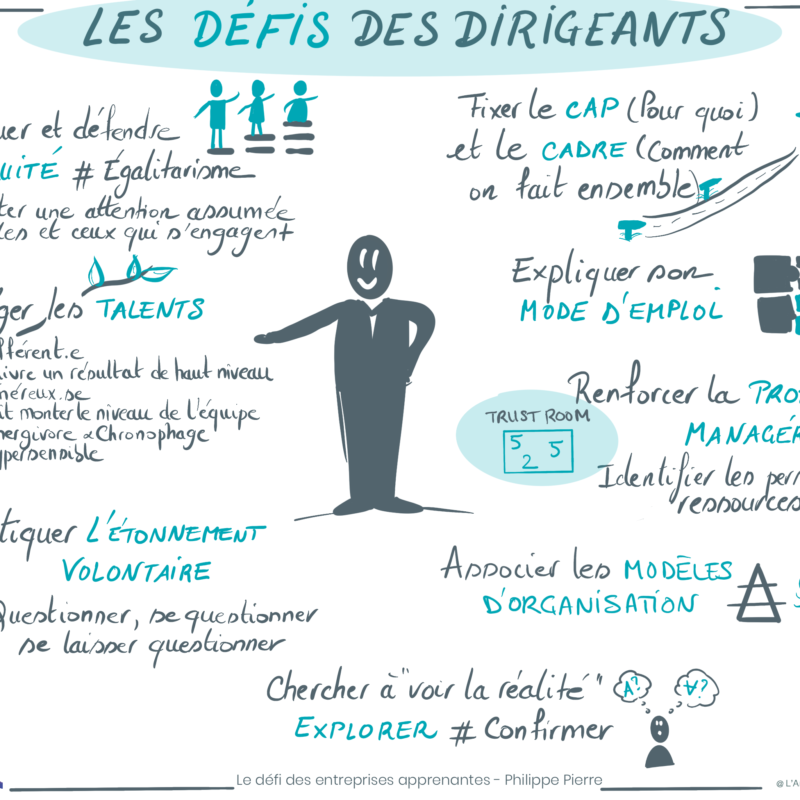 LES DÉFIS DES DIRIGEANTS
uer et défendre
UITÉ # Égalitarisme
ter une attention assumée
les et ceux qui s'engagent
ger les TALENTS
fférent.e
ivre un résultat de haut niveau
néreux.se
it monter le niveau de l'équipe
nergivore & Chronophage
ypersensible
tiquer L'ÉTONNEMENT
VOLONTAIRE
Questionner, se questionner
se laisser questionner
Fixer le CAP (Pour quoi)
et le CADRE (Comment
on fait ensemble)
Expliquer son
MODE D'EMPLOI
Renforcer la PRO
MANAGÉR
TRUST ROOM
5 5
2
Identifier les per
ressources
Associer les MODÈLES
D'ORGANISATION
Chercher à "voir la réalité"
A? ∀?
EXPLORER # Confirmer
Le défi des entreprises apprenantes - Philippe Pierre
@ L'A